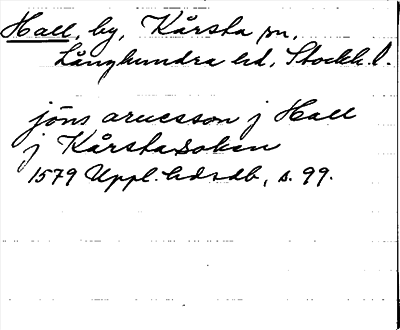 Hall, by, Kårsta sn,
Långhundra hd, Stockh. l.
jöns aruesson j Hall
j Kårsta soken
1579 Uppl. hdsdb, s. 99.